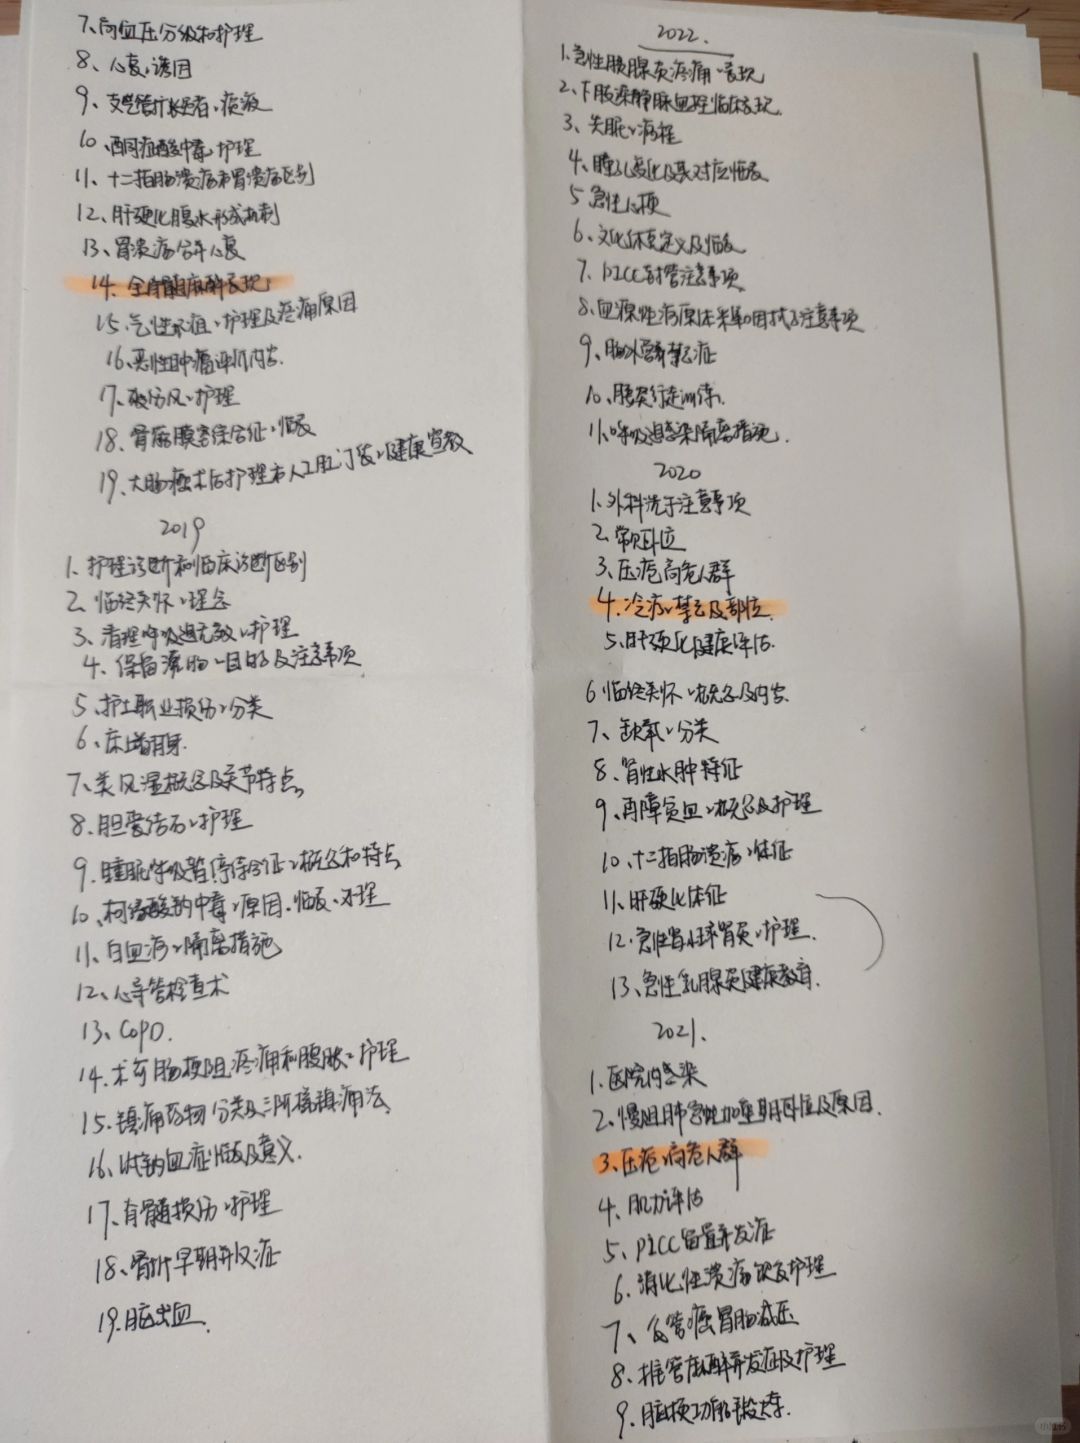 7、高血压分级和护理
8、心衰、诱因
9、支气管扩张患者、痰液
10、酮症酸中毒、护理
11、十二指肠溃疡和胃溃疡区别
12、肝硬化腹水形成机制
13、胃溃疡合并心衰
14、全脊髓麻醉表现
15、气性坏疽、护理及疼痛原因
16、恶性肿瘤评价内容.
17、破伤风、护理
18、骨筋膜室综合征、临表
19、大肠癌术后护理 人工肛门袋、健康宣教
2019
1、护理诊断和临床诊断区别
2、临终关怀、理念
3、清理呼吸道无效、护理
4、保留灌肠、目的及注意事项
5、护士职业损伤、分类
6、床增
7、类风湿概念及关节特点
8、胆囊结石、护理
9、睡眠呼吸暂停综合征、概念和特点
10、枸橼酸钠中毒、原因、临表、处理
11、白血病、隔离措施
12、心导管检查术
13、COPD.
14、术前肠梗阻疼痛和腹胀、护理
15、镇痛药物分类及三阶梯镇痛法
16、低钠血症临表及意义.
17、脊髓损伤、护理
18、骨折早期并发症
19、脑出血.
2022.
1、急性胰腺炎疼痛、表现
2、下肢深静脉血栓临床表现.
3、失眠、病程
4、瞳孔变化及其对应临表
5 急性心梗
6、文化休克定义及临表
7、PICC封管注意事项
8、血源性病原体采集因拭子注意事项
9、肠外营养禁忌症
10、膀胱行走训练.
11、呼吸道感染隔离措施.
2020
1、外科洗手注意事项
2、常见卧位
3、压疮高危人群
4、冷疗、禁忌及部位
5、肝硬化健康评估.
6 临终关怀、概念及内容
7、缺氧、分类
8、肾性水肿特征
9、再障贫血、概念及护理
10、十二指肠溃疡、体征
11、肝硬化体征
12、急性肾小球肾炎、护理.
13、急性乳腺炎健康教育.
2021.
1、医院内感染
2、慢阻肺急性加重期卧位及原因.
3、压疮、高危人群
4、肌力评估
5、PICC留置并发症
6、消化性溃疡饮食护理
7、食管癌胃肠减压
8、椎管麻醉并发症及护理
9、脑梗功能锻炼.